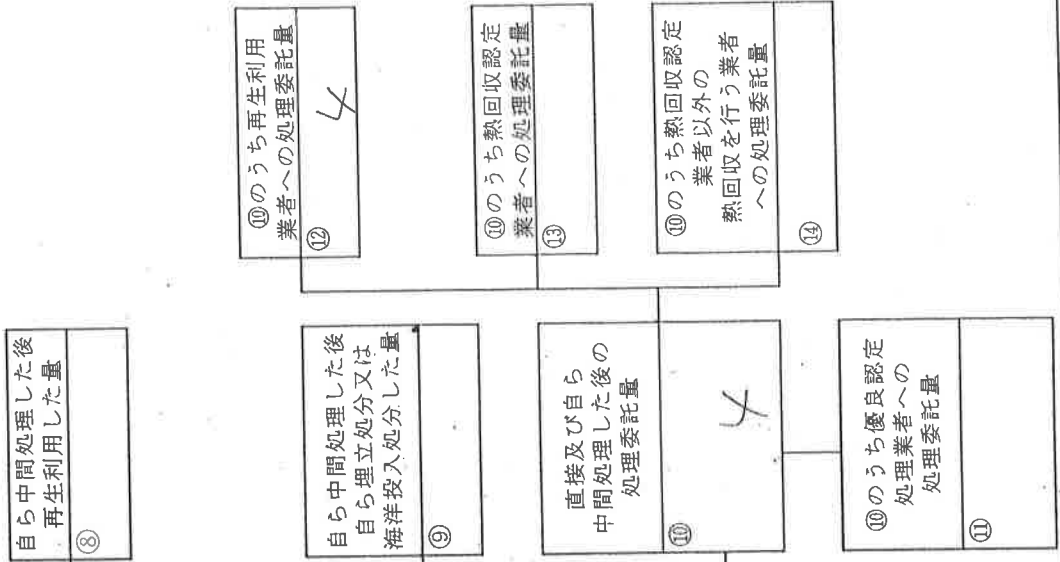 自ら中間処理した後
再生利用した量
⑧
自ら中間処理した後
自ら埋立処分又は
海洋投入処分した量
⑨
直接及び自ら
中間処理した後の
処理委託量
⑩
4
⑩のうち優良認定
処理業者への
処理委託量
⑪
⑩のうち再生利用
業者への処理委託量
⑫
4
⑩のうち熱回収認定
業者への処理委託量
⑬
⑩のうち熱回収認定
業者以外の
熱回収を行う業者
への処理委託量
⑭